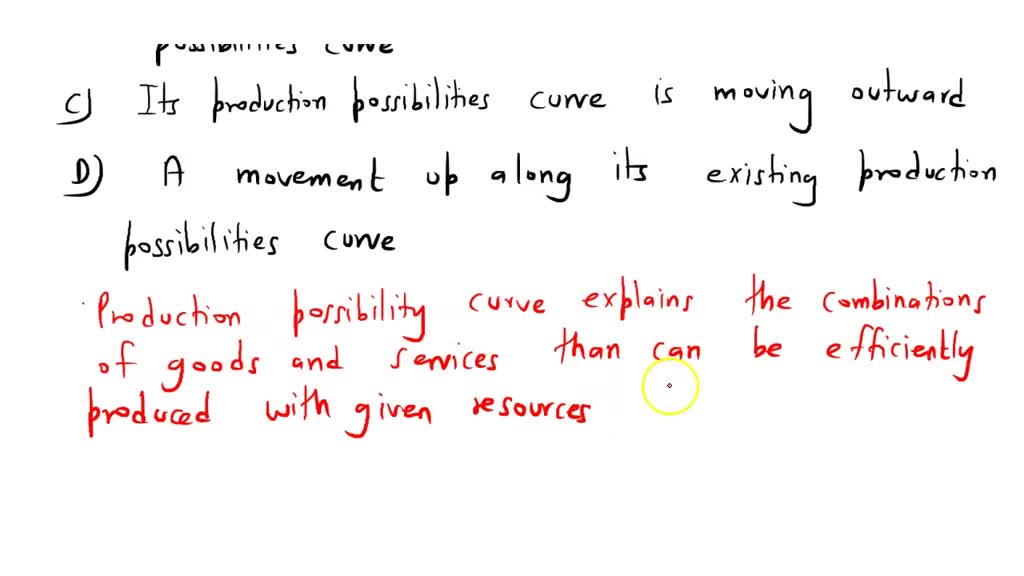 possibilities curve
C) Its production possibilities curve is moving outward
D) A movement up along its existing production
possibilities curve
Production possibility curve explains the combinations
of goods and services than can be efficiently
produced with given resources